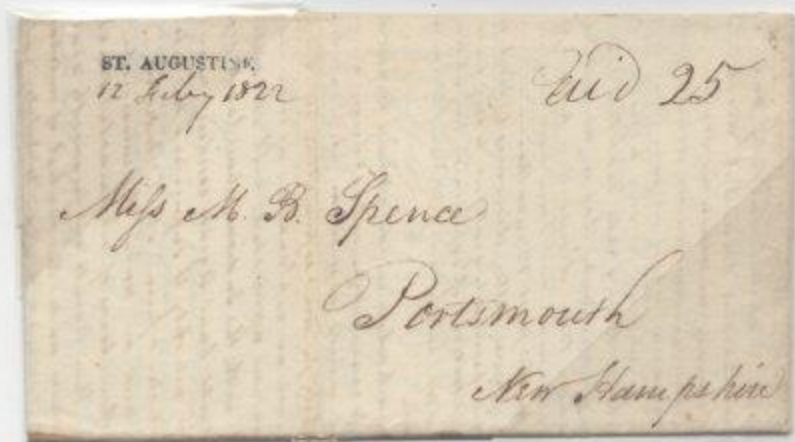 ST. AUGUSTINE.
12 Feby 1822
Paid 25
Miss M. B. Spence
Portsmouth
New Hampshire